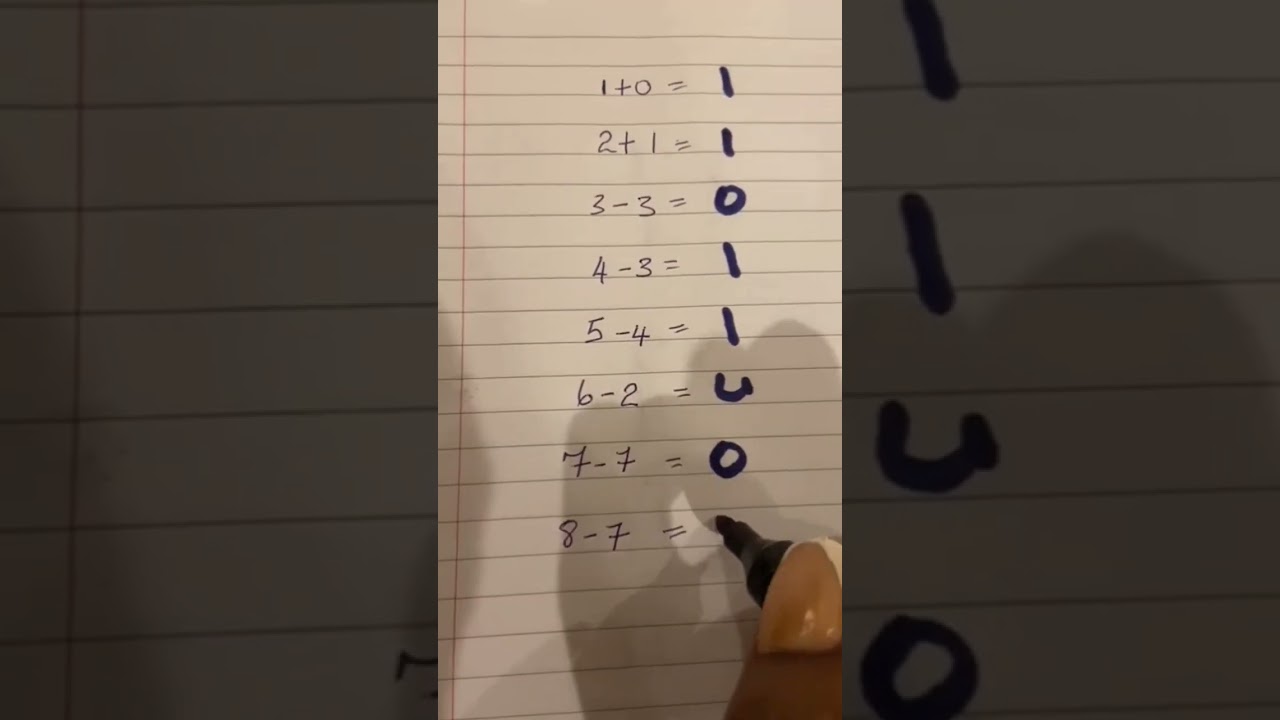 1+0 = 1
2+1 = 1
3-3 = 0
4-3 = 1
5-4 = 1
6-2 =
7-7 = 0
8-7 =